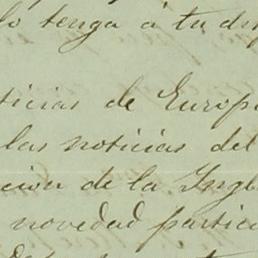 lo tenga á tu dis
ticias de Europa
las noticias del
cion de la Ingl
novedad partic